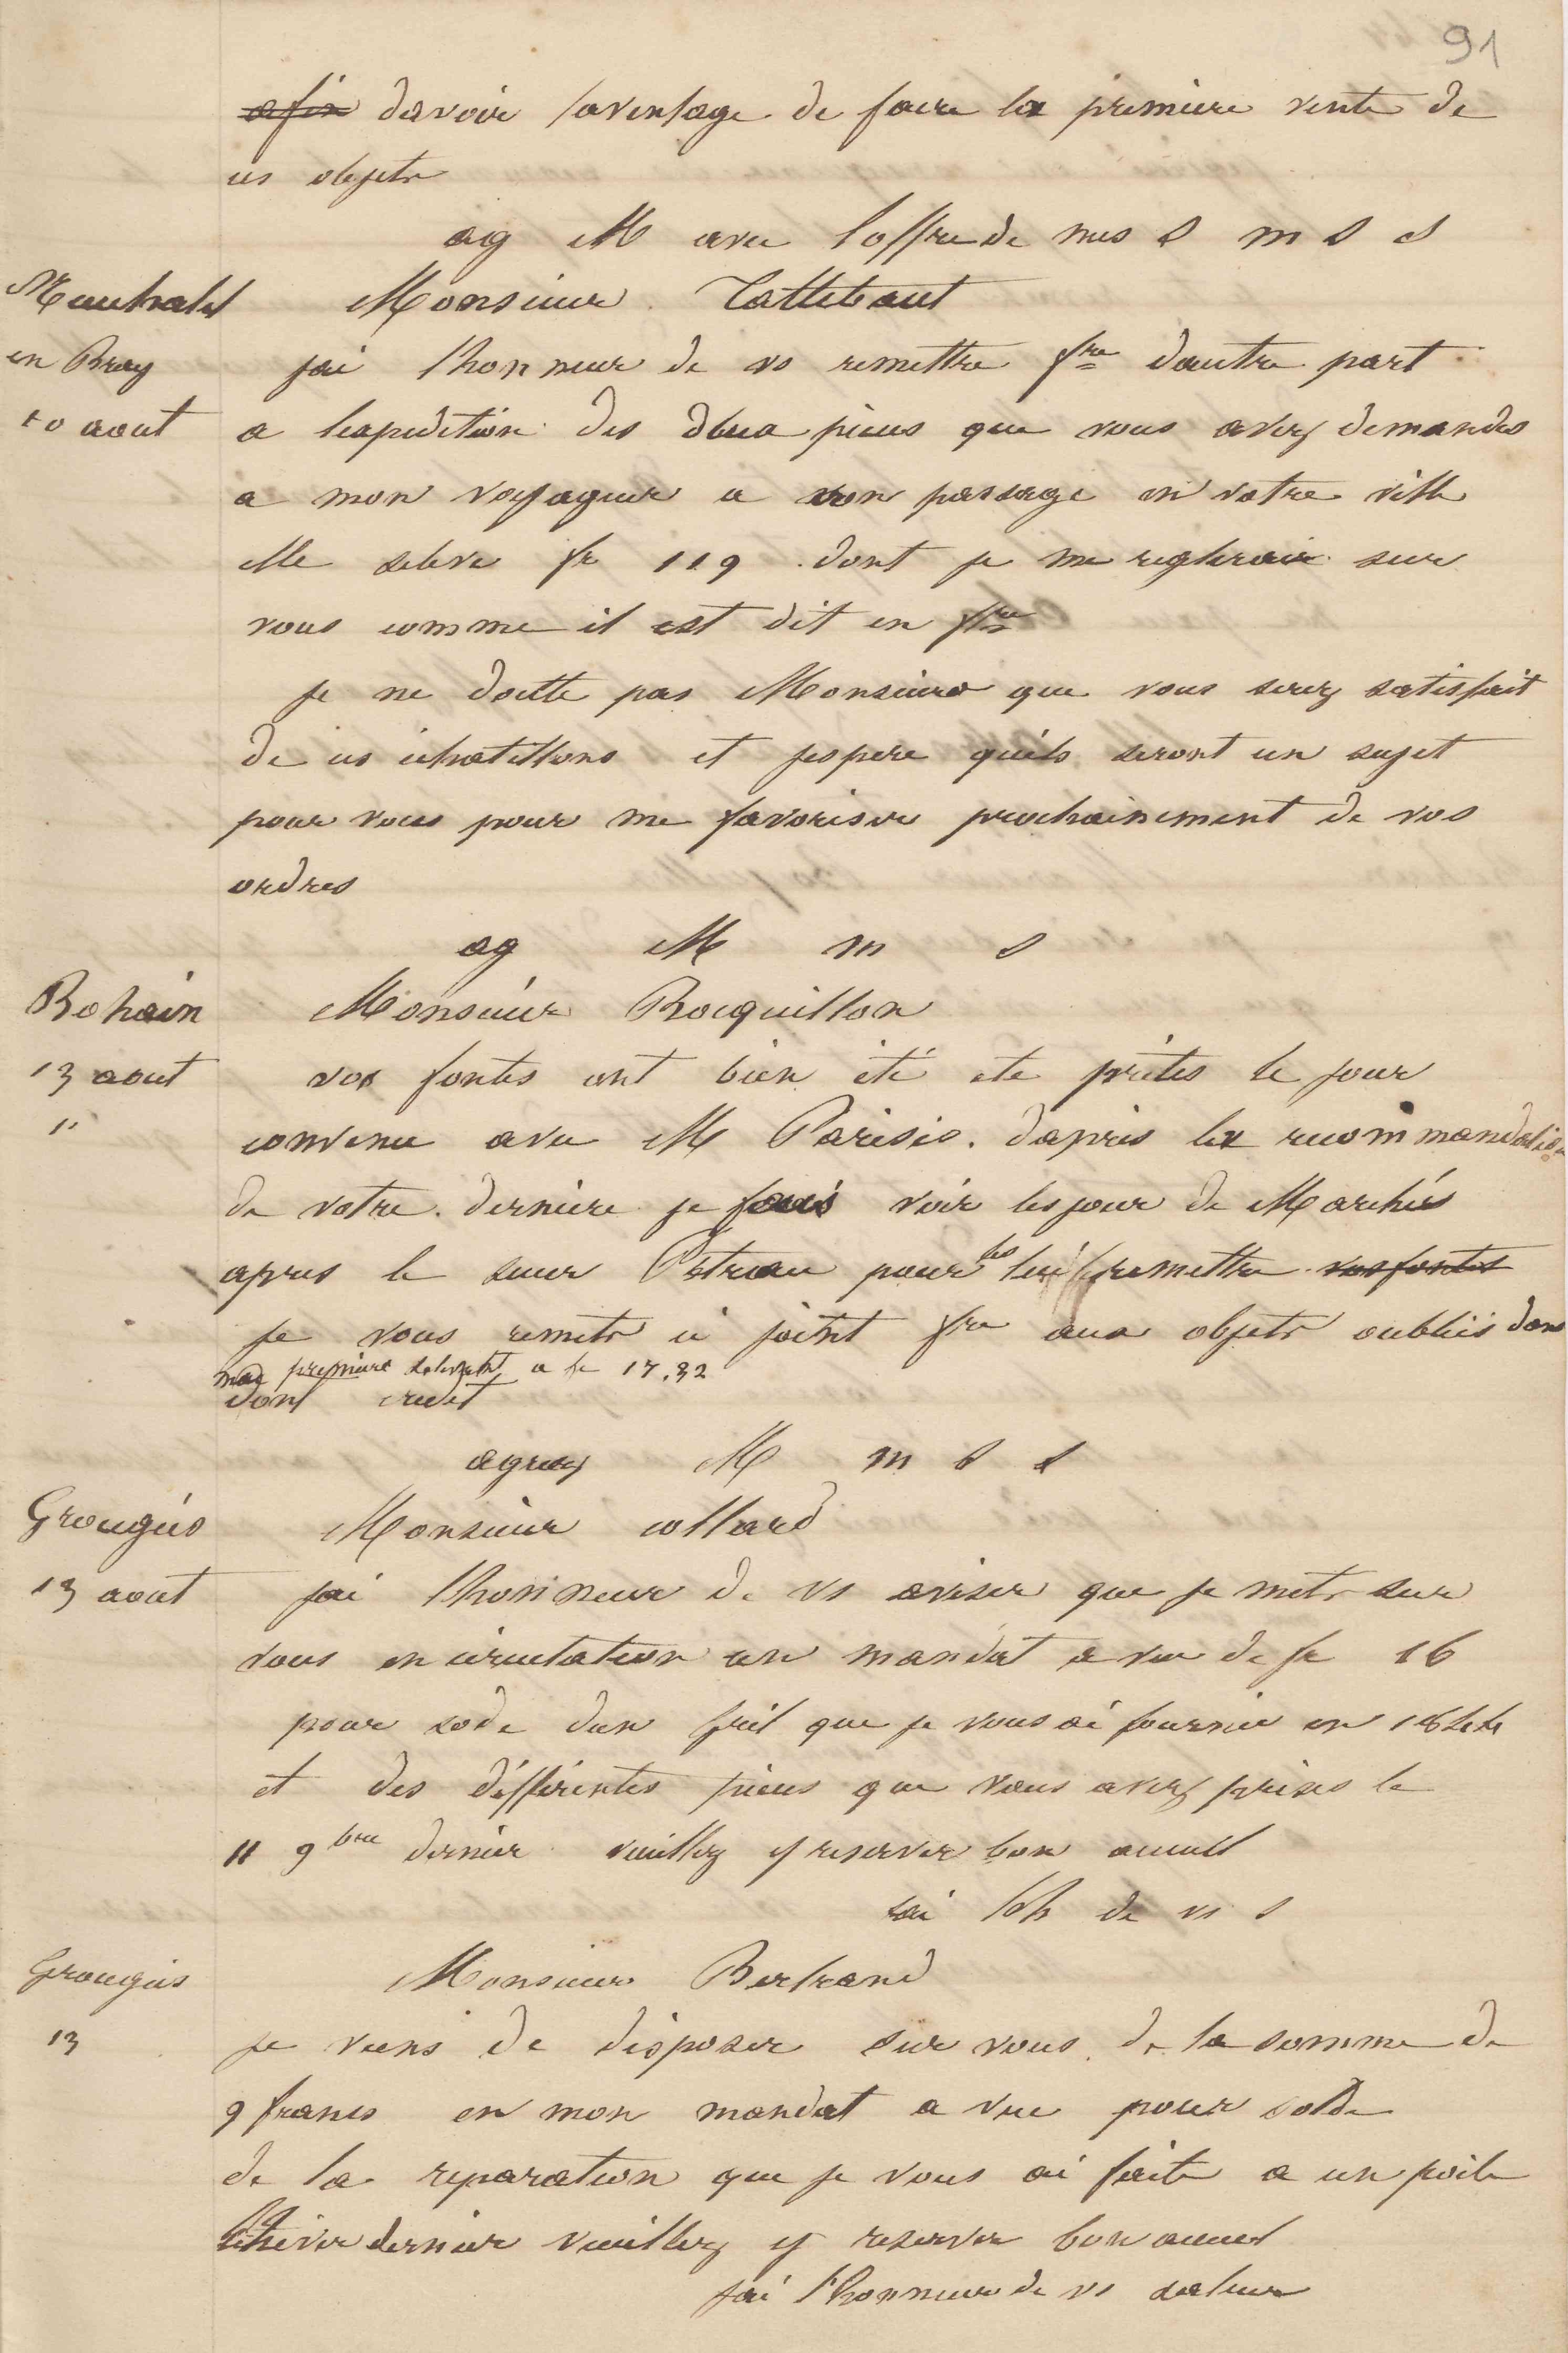 91
afin davoir lavantage de faire la premiere vente de
ces objets
ag M avec loffre de mes s m s s
Neufchatel
en Bray
10 aout
Monsieur Tattebaut
jai lhonneur de vs remettre fre dautre part
a lexpedition des deux pieces que vous avez demandes
a mon voyageur a son passage en votre ville
elle seleve fr 119 dont je me reglerais sur
vous comme il est dit en fre
je ne doutte pas Monsieur que vous serez satisfait
de ces echatillons et jespere quils seront un sujet
pour vous pour me favoriser prochainement de vos
ordres
ag M m s
Bohain
13 aout
"
Monsieur Rocquillon
vos fontes ont bien été ete prètes le jour
convenu avec M Parisis. dapres la recommandation
de votre derniere je fais voir les jour de Marchés
apres le sieur Pétreau pour les lui remettre vos fontes
je vous remets ci joint fre aux objets oubliés dans
ma premiere selevant a fr 17.32
dont credit
agreez M m s s
Grougiés
13 aout
Monsieur collard
jai lhonneur de vs aviser que je mets sur
vous en circulation un mandat a vue de fr 16
pour sode dun gril que je vous ai fourni en 1844
et des différentes pieces que vous avez prises le
11 9bre dernier veuillez y reserver bon accueil
jai lh de vs s
Grougies
13
Monsieur Bertrand
je viens de disposer sur vous de la somme de
9 francs en mon mandat a vue pour solde
de la reparation que je vous ai faite a un poile
lhiver dernier veuillez y reserver bon accueil
jai lhonneur de vs saluer